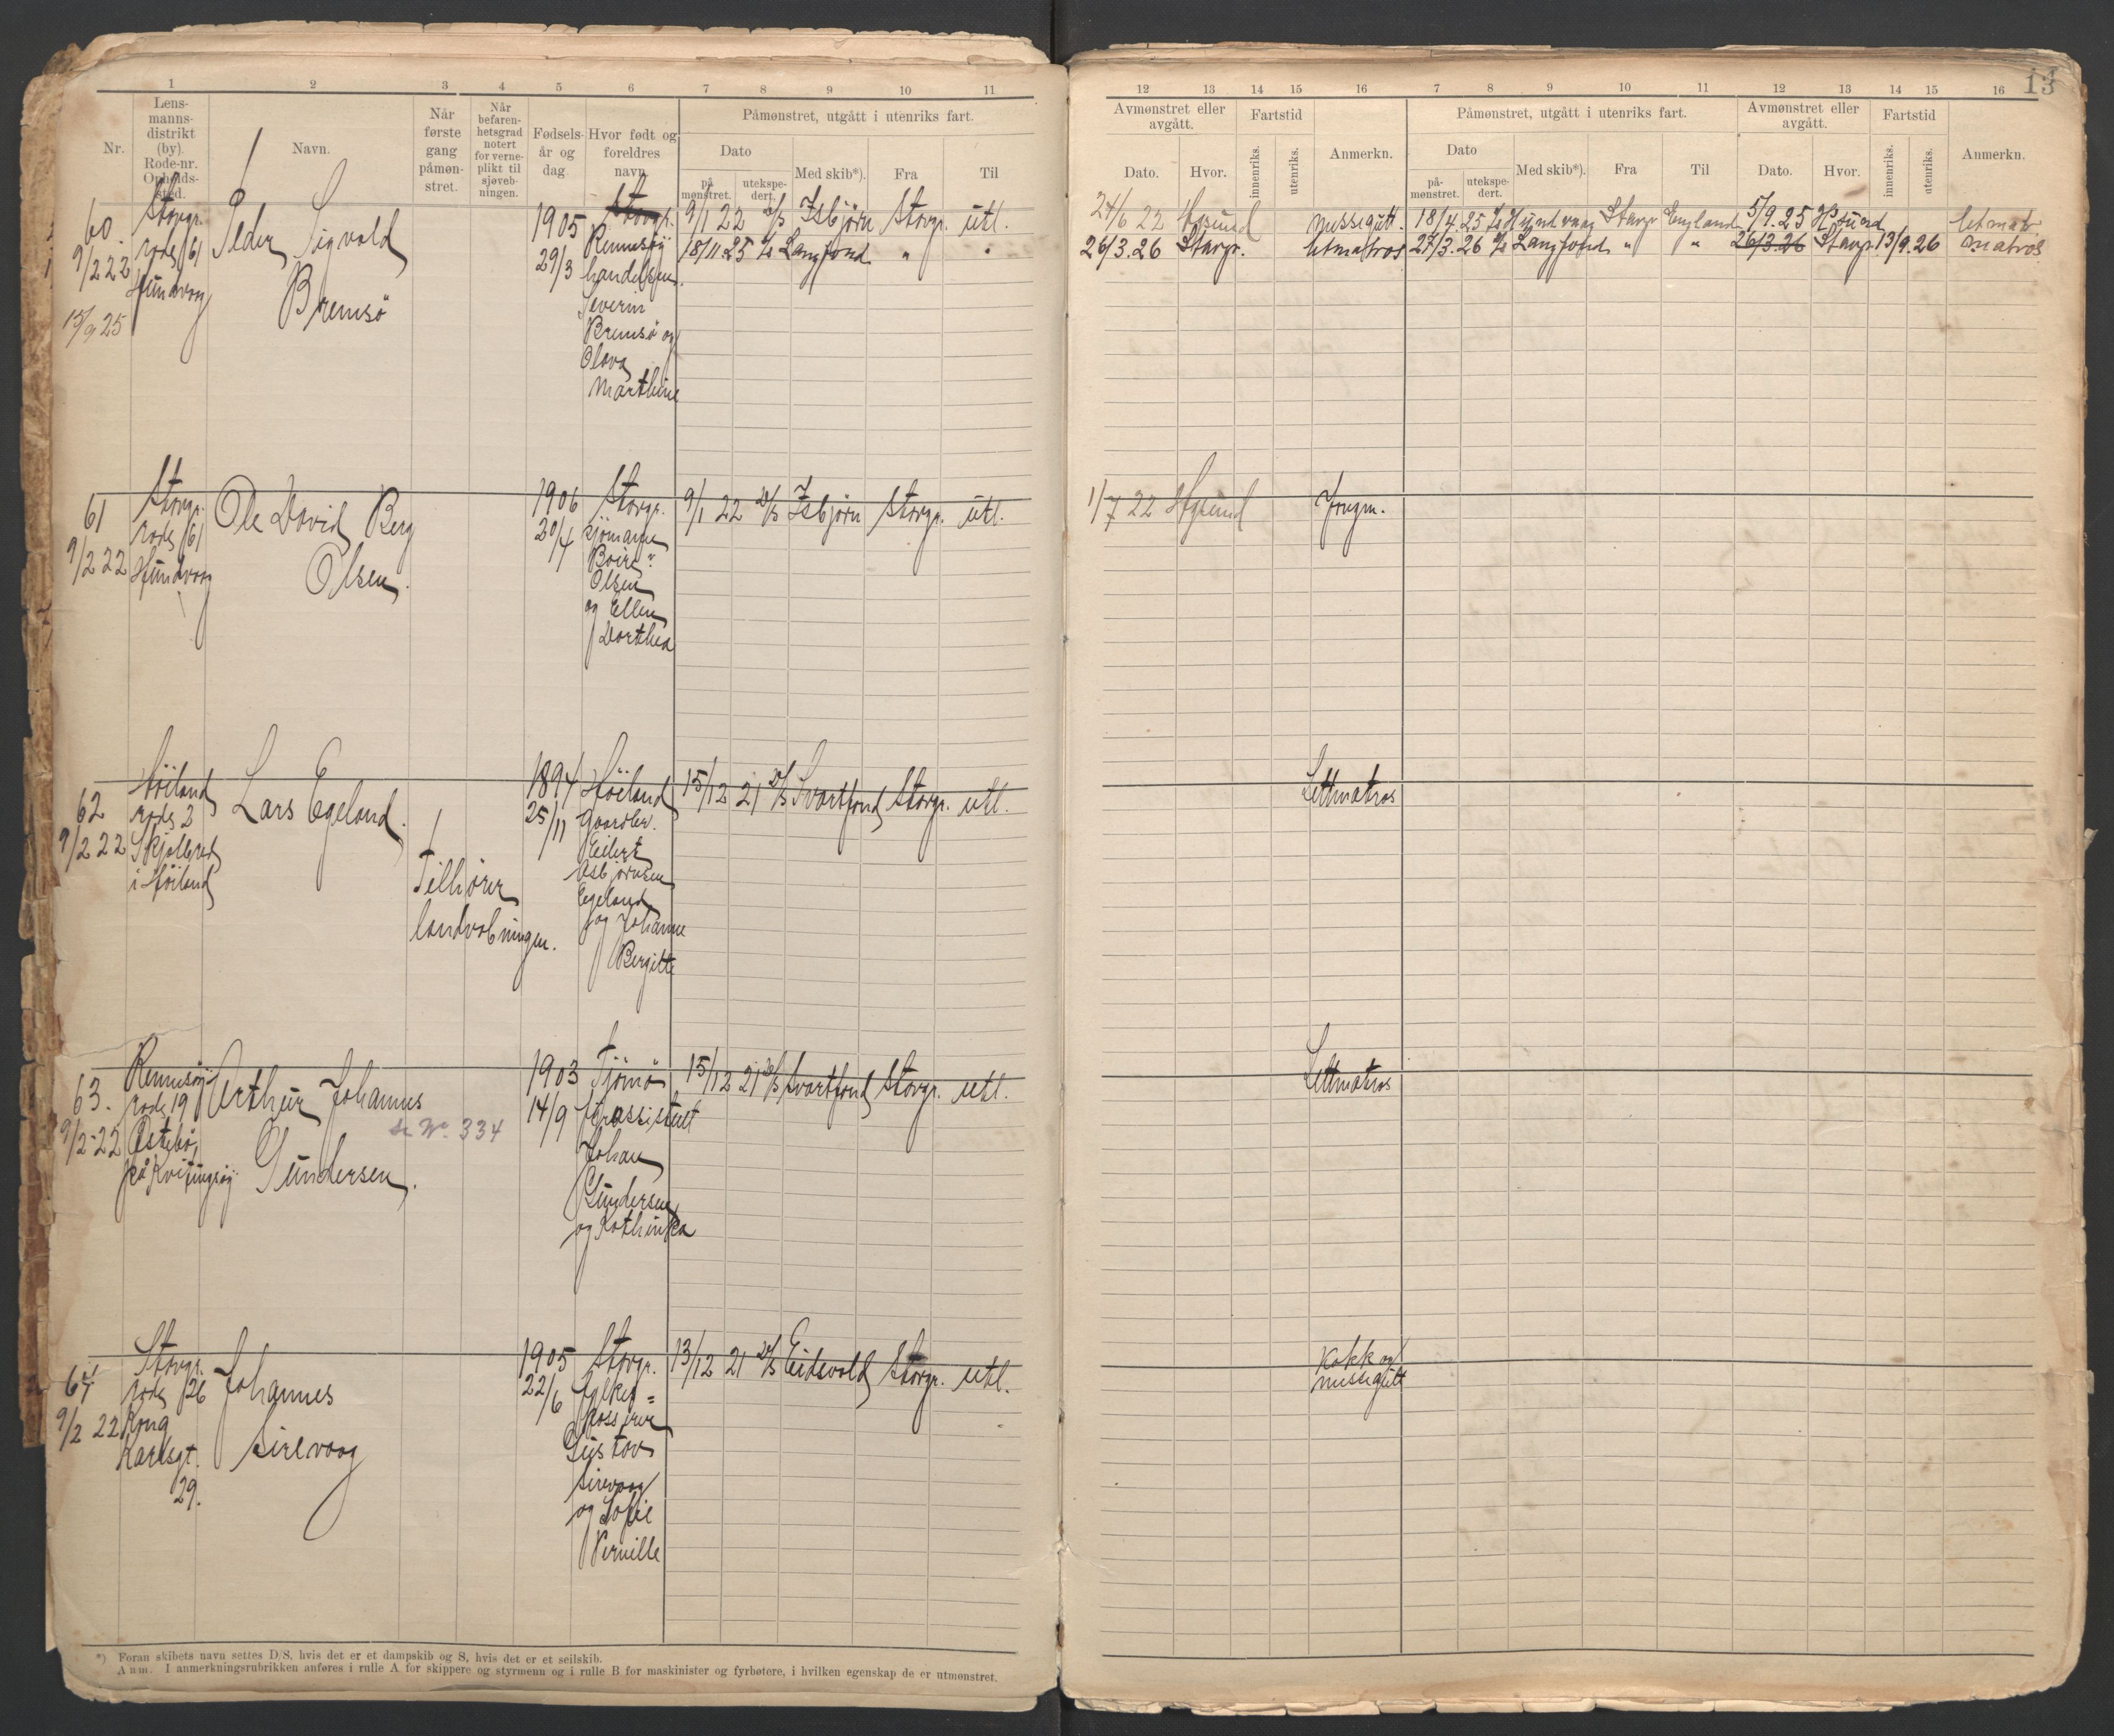 1 2 3 4 5 6 7 8 9 10 11
Nr.
Lens-
manns-
distrikt
(by).
Rode-nr.
Opholds-
sted.
Navn.
Når
første
gang
påmøn-
stret.
Når
befaren-
hetsgrad
notert
for verne-
plikt til
sjøveb-
ningen.
Fødsels-
år og
dag.
Hvor født og
foreldres
navn
Påmønstret, utgått i utenriks fart.
Dato
på
mønstret.
utekspe-
dert.
Med skib*).
Fra
Til
60
9/2 22
15/9 25
Stavgr.
rode 61
Hundvaag
Peder Sigvald
Bremsö
1905
29/3
Stavgr.
Rennesöy
handelsm.
Severin
Bremsö og
Olava
Marthine
9/1 22 D/S Isbjørn Stavgr. utl.
18/11 25 Langfond " "
61
9/2 22
Stavgr.
rode 61
Hundvaag
Ole David Berg
Olsen.
1906
20/4
Stavgr.
sjömann
Olsen
og Ellen
Dorthea
9/1 22 D/S Isbjörn Stavgr. utl.
62
9/2 22
Höiland
rode 2
Skjalbred
i Höiland
Lars Egeland.
Tilhörer
landvæbningen.
1894
25/11
Höiland
Gaardbr.
Eilert
Asbjörnsen
Egeland
og Johanne
Bergitte
15/12 21 D/S Svartfond Stavgr. utl.
63.
9/2-22
Rennesöy
rode 19
Östebö
på Kvitingsöy
Arthur Johannes
Gundersen.
se No. 334
1903
14/9
Tjömö
fyrassistent
Johan
Gundersen
og Kathinka
15/12 21 D/S Svartfond Stavgr. utl.
64
9/2 22
Stavgr.
rode 26
Kong
Karlsgt.
29.
Johannes
Sirevaag
1905
22/6
Stavgr.
fylkes=
kasserer
Gustav
Sirevaag
og Sofie
Pernille
13/12 21 D/S Eidsvold Stavgr. utl.
*) Foran skibets navn settes D/S, hvis det er et dampskib og S, hvis det er et seilskib.
Anm. I anmerkningsrubrikken anføres i rulle A for skippere og styrmenn og i rulle B for maskinister og fyrbøtere, i hvilken egenskap de er utmønstret.
13
12 13 14 15 16 7 8 9 10 11 12 13 14 15 16
Avmønstret eller
avgått.
Fartstid
Dato. Hvor.
innenriks.
utenriks.
Anmerkn.
Påmønstret, utgått i utenriks fart.
Dato
på-
mønstret.
utekspe-
dert.
Med skib*).
Fra
Til
Avmønstret eller
avgått.
Fartstid
Dato. Hvor.
innenriks.
utenriks.
Anmerkn.
24/6 22 Hgsund messegutt. 18/4.25 Hundvaag Stavgr England 5/9.25 Hgsund letmatr.
26/3.26 Stavgr. letmatros 27/3.26 Langfond " " 26/3.26 Stavgr 13/9.26 matros
1/7 22 Hgsund Jungm.
Lettmatros
Lettmatros
Kokk og
messegutt